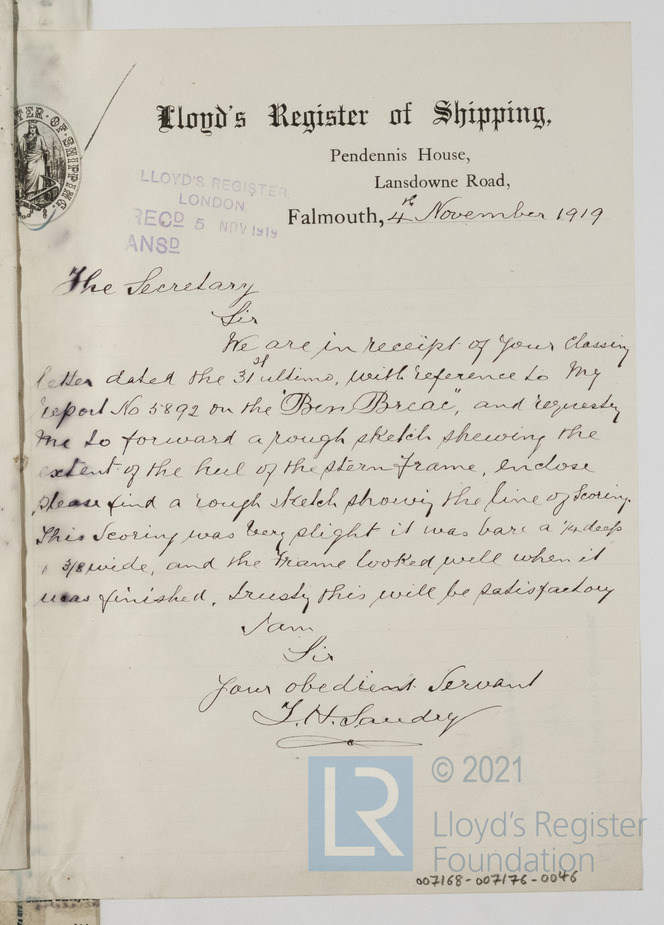 Lloyd's Register of Shipping,
Pendennis House,
Lansdowne Road,
Falmouth, 4th November 1919
LLOYD'S REGISTER,
LONDON.
RECD 5 NOV 1919
ANSD
TER·OF·SHIPPING.
The Secretary
Sir
We are in receipt of your Classing
letter dated the 31st ultimo, with reference to My
report No 5892 on the "Ben Breac", and requesty
Me to forward a rough sketch shewing the
extent of the heel of the stern frame, enclose
please find a rough sketch showing the line of Scoring.
This Scoring was very slight it was bare a 1/4 deep
3/8 wide, and the Frame looked well when it
was finished, trusty this will be satisfactory
I am
Sir
Your obedient Servant
© 2021
LR
Lloyd's Register
Foundation
007168-007176-0046